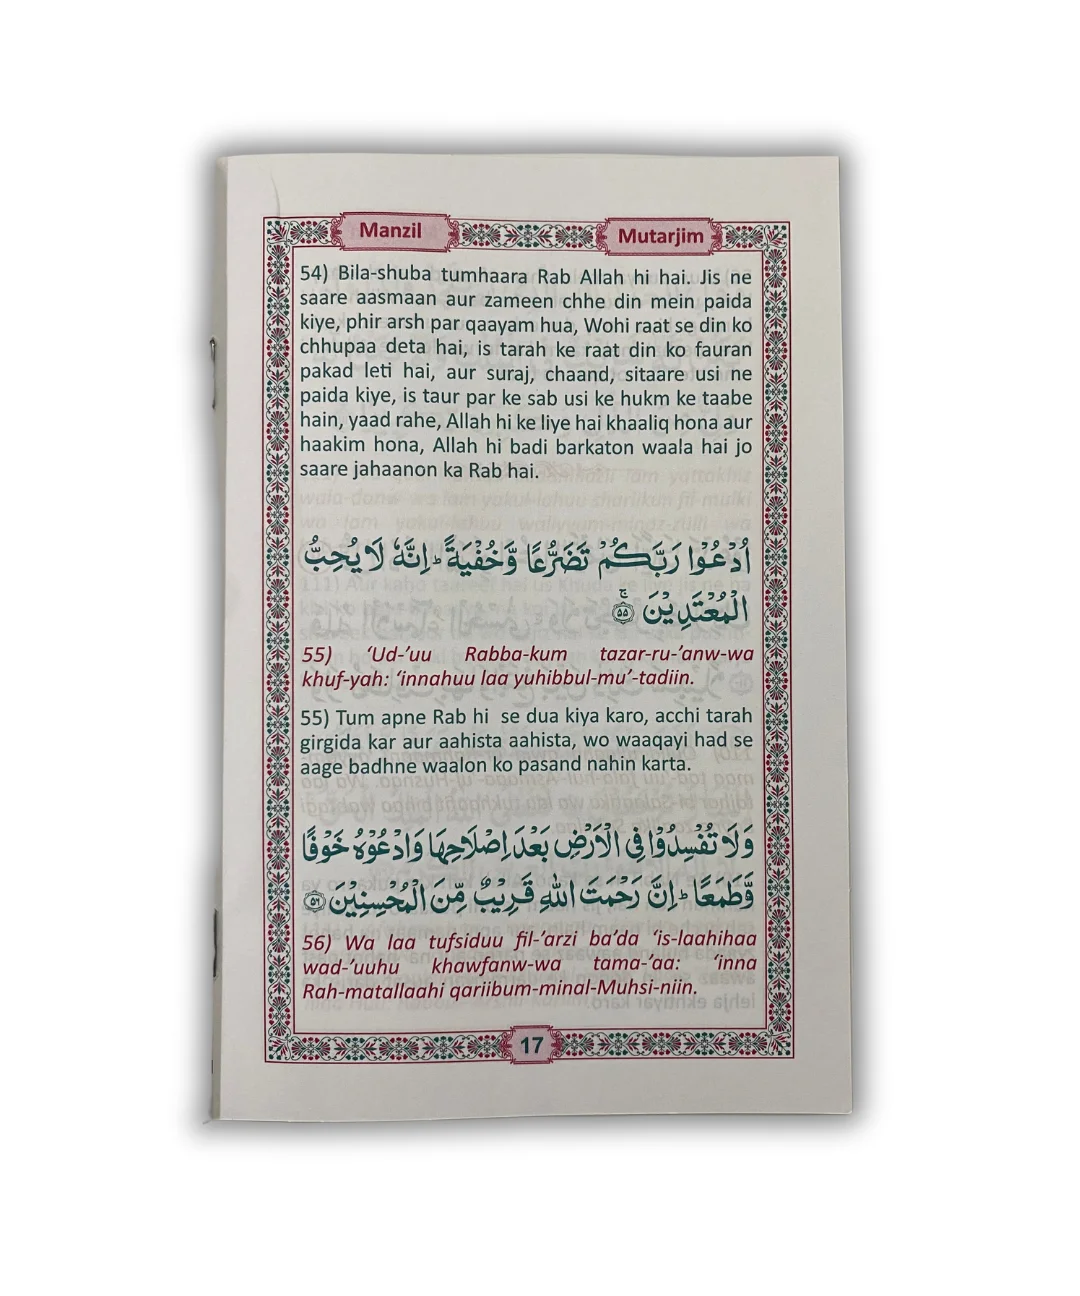 Manzil
Mutarjim
54) Bila-shuba tumhaara Rab Allah hi hai. Jis ne
saare aasmaan aur zameen chhe din mein paida
kiye, phir arsh par qaayam hua, Wohi raat se din ko
chhupaa deta hai, is tarah ke raat din ko fauran
pakad leti hai, aur suraj, chaand, sitaare usi ne
paida kiye, is taur par ke sab usi ke hukm ke taabe
hain, yaad rahe, Allah hi ke liye hai khaaliq hona aur
haakim hona, Allah hi badi barkaton waala hai jo
saare jahaanon ka Rab hai.
اُدْعُوْا رَبَّكُمْ تَضَرُّعًا وَّخُفْيَةً ؕ اِنَّهٗ لَا يُحِبُّ
الْمُعْتَدِيْنَ ۚ ۝٥٥
55) ‘Ud-’uu Rabba-kum tazar-ru-’anw-wa
khuf-yah: ‘innahuu laa yuhibbul-mu’-tadiin.
55) Tum apne Rab hi se dua kiya karo, acchi tarah
girgida kar aur aahista aahista, wo waaqayi had se
aage badhne waalon ko pasand nahin karta.
وَلَا تُفْسِدُوْا فِى الْاَرْضِ بَعْدَ اِصْلَاحِهَا وَادْعُوْهُ خَوْفًا
وَّطَمَعًا ؕ اِنَّ رَحْمَتَ اللّٰهِ قَرِيْبٌ مِّنَ الْمُحْسِنِيْنَ ۝٥٦
56) Wa laa tufsiduu fil-’arzi ba’da ‘is-laahihaa
wad-’uuhu khawfanw-wa tama-’aa: ‘inna
Rah-matallaahi qariibum-minal-Muhsi-niin.
17